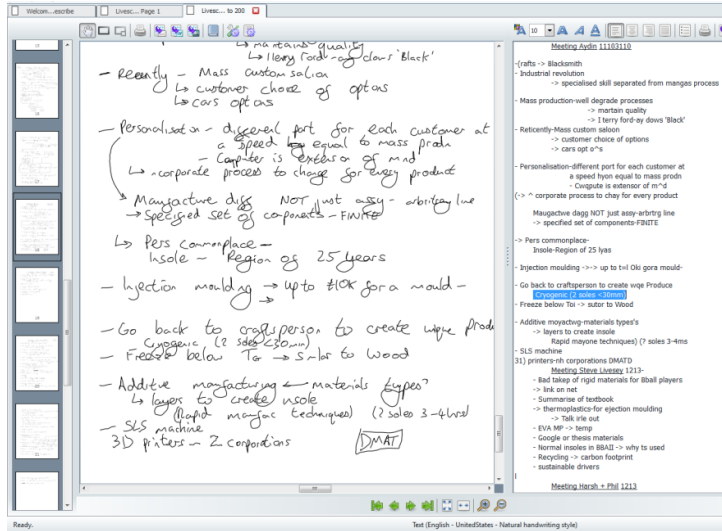 Welcom...escribe
Livesc... Page 1
Livesc... to 200
10
↳ maintains quality
↳ Henry Ford - any colour 'Black'
- Recently - Mass customisation
↳ customer choice of options
↳ cars options
- Personalisation - different part for each customer at
a speed equal to mass produ
- Computer is extension of mind
↳ incorporate process to change for every product
Manufacture diff NOT just assy - arbitrary line
→ Specified set of components - FINITE
↳ Pers commonplace -
Insole - Region of 25 years
- Injection moulding → up to £10K for a mould -
→
- Go back to craftsperson to create unique produ
Cryogenic (2 soles <30min)
- Freeze below → similar to wood
- Additive manufacturing ← materials types?
↳ layers to create insole
(Rapid manufac techniques) (? soles 3-4hrs)
- SLS machine
3D printers - Z corporations
DMAT
Meeting Aydin 11103110
-(rafts -> Blacksmith
- Industrial revolution
-> specialised skill separated from mangas process
- Mass production-well degrade processes
-> martain quality
-> I terry ford-ay dows 'Black'
- Reticently-Mass custom saloon
-> customer choice of options
-> cars opt o^s
- Personalisation-different port for each customer at
a speed hyon equal to mass prodn
- Cwqpute is extensor of m^d
(-> ^ corporate process to chay for every product
Maugactwe dagg NOT just assy-arbrtrg line
-> specified set of components-FINITE
-> Pers commonplace-
Insole-Region of 25 lyas
- Injection moulding ->-> up to t=l Oki gora mould-
- Go back to craftsperson to create wqe Produce
Cryogenic (2 soles <30min)
- Freeze below Toi -> sutor to Wood
- Additive moyactwg-materials types's
-> layers to create insole
Rapid mayone techniques) (? soles 3-4ms
- SLS machine
31) printers-nh corporations DMATD
Meeting Steve Livesey 1213-
- Bad takep of rigid materials for 8ball players
-> link on net
- Summarise of textbook
-> thermoplastics-for ejection moulding
-> Talk irle out
- EVA MP -> temp
- Google or thesis materials
- Normal insoles in BBAII -> why ts used
- Recycling -> carbon footprint
- sustainable drivers
I
Meeting Harsh + Phil 1213
Ready.
Text (English - UnitedStates - Natural handwriting style)